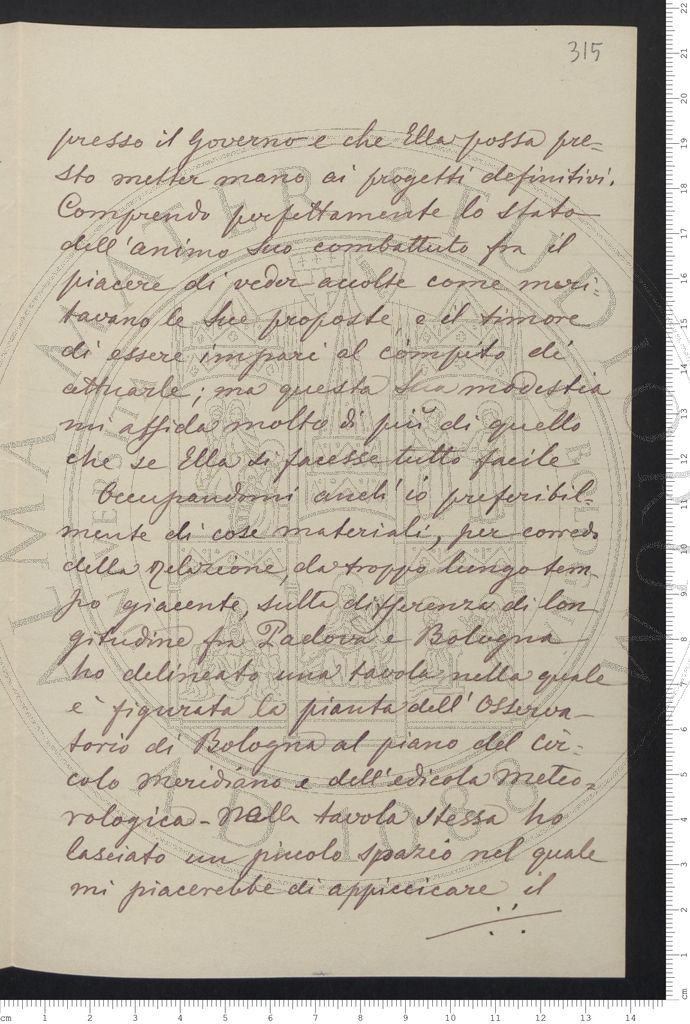 315
presso il Governo e che Ella possa pre=
sto metter mano ai progetti definitivi.
Comprendo perfettamente lo stato
dell'animo Suo combattuto fra il
piacere di veder accolte come meri-
tavano le Sue proposte, e il timore
di essere impari al cómpito di
attuarle; ma questa Sua modestia
mi affida molto di più di quello
che se Ella si facesse tutto facile
Occupandomi anch'io preferibil-
mente di cose materiali, per corredo
della Relazione, da troppo lungo tem-
po giacente, sulla differenza di lon
gitudine fra Padova e Bologna
ho delineato una tavola nella quale
è figurata la pianta dell'Osserva-
torio di Bologna al piano del Cir-
colo meridiano e dell'edicola Meteo=
rologica - Nella tavola stessa ho
lasciato un piccolo spazio nel quale
mi piacerebbe di appiccicare il
ALMA MATER STUDIORUM
A.D. 1088